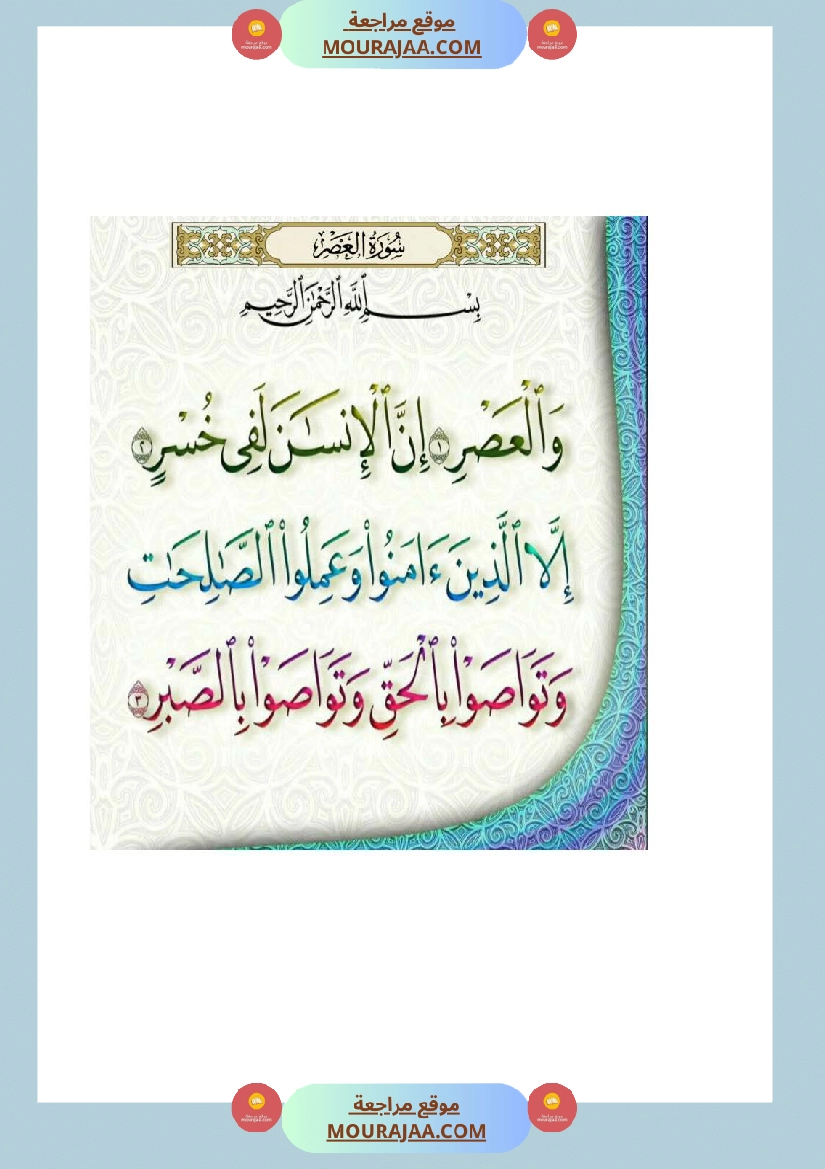 موقع مراجعة
MOURAJAA.COM
سُورَةُ الْعَصْرِ
بِسْمِ ٱللَّهِ ٱلرَّحْمَٰنِ ٱلرَّحِيمِ
وَٱلْعَصْرِ ١ إِنَّ ٱلْإِنسَٰنَ لَفِى خُسْرٍ ٢
إِلَّا ٱلَّذِينَ ءَامَنُوا۟ وَعَمِلُوا۟ ٱلصَّٰلِحَٰتِ
وَتَوَاصَوْا۟ بِٱلْحَقِّ وَتَوَاصَوْا۟ بِٱلصَّبْرِ ٣
موقع مراجعة
MOURAJAA.COM